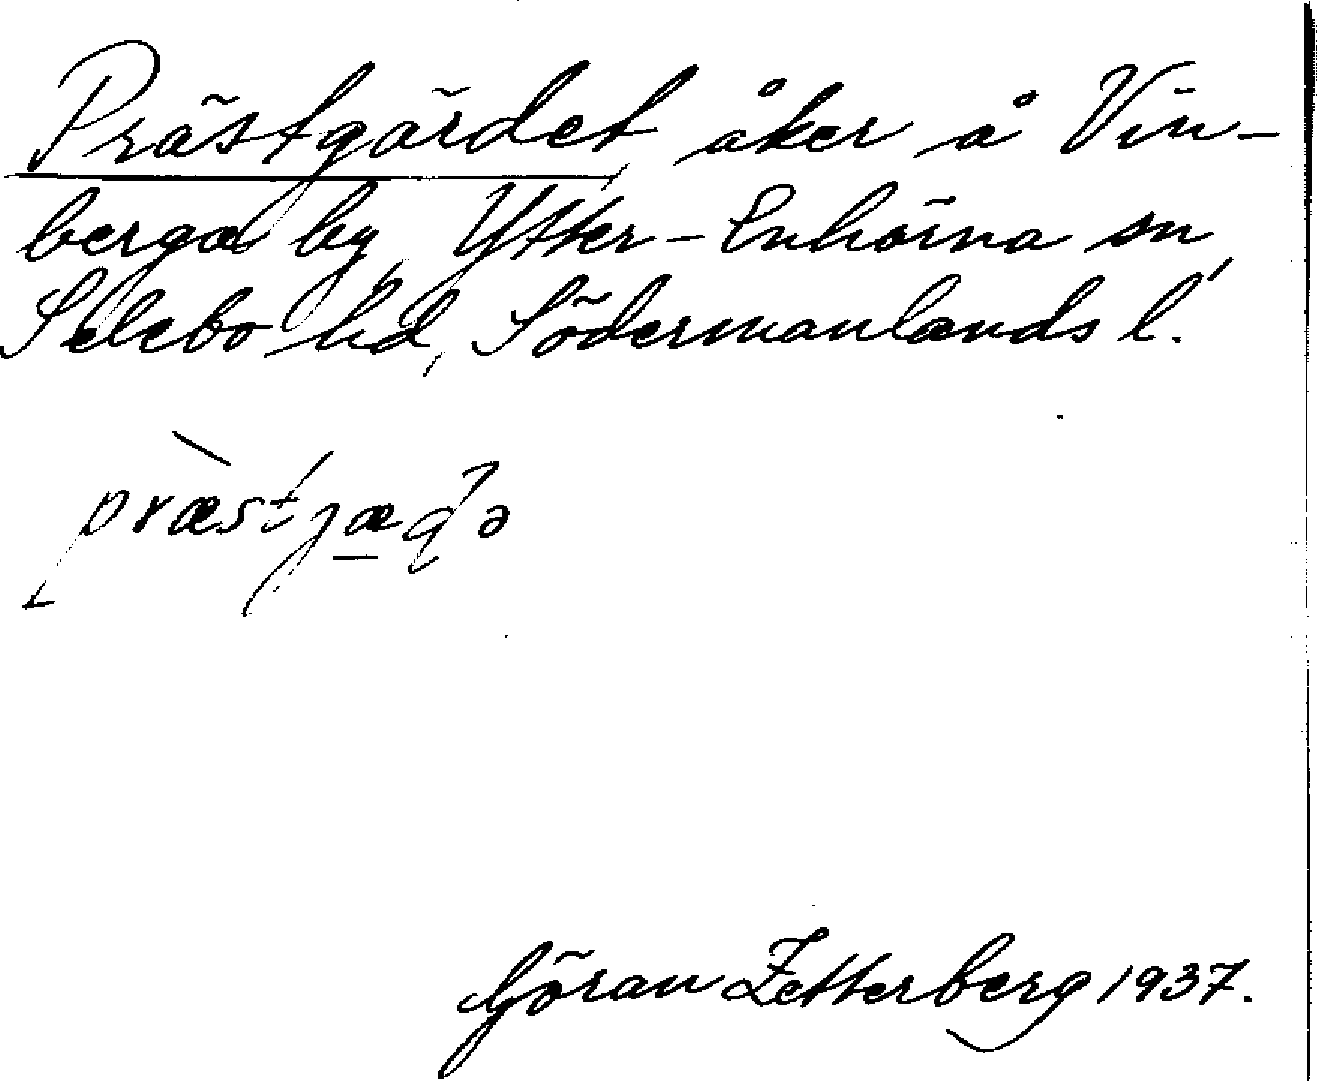 Prästgärdet, åker å Vin-
berga by, Ytter-Enhörna sn,
Selebo hd, Södermanlands l.
Göran Zetterberg 1937.